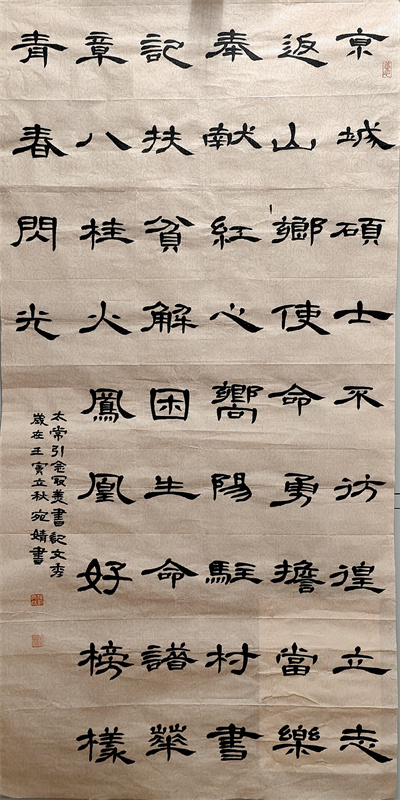 京城碩士不彷徨立志
返山鄉使命勇擔當樂
奉献紅心嚮陽駐村書
記扶貧解困生命譜華
章八桂火鳳凰好榜樣
青春閃光
太常引 美書記文秀
歲在壬寅立秋宛婧書